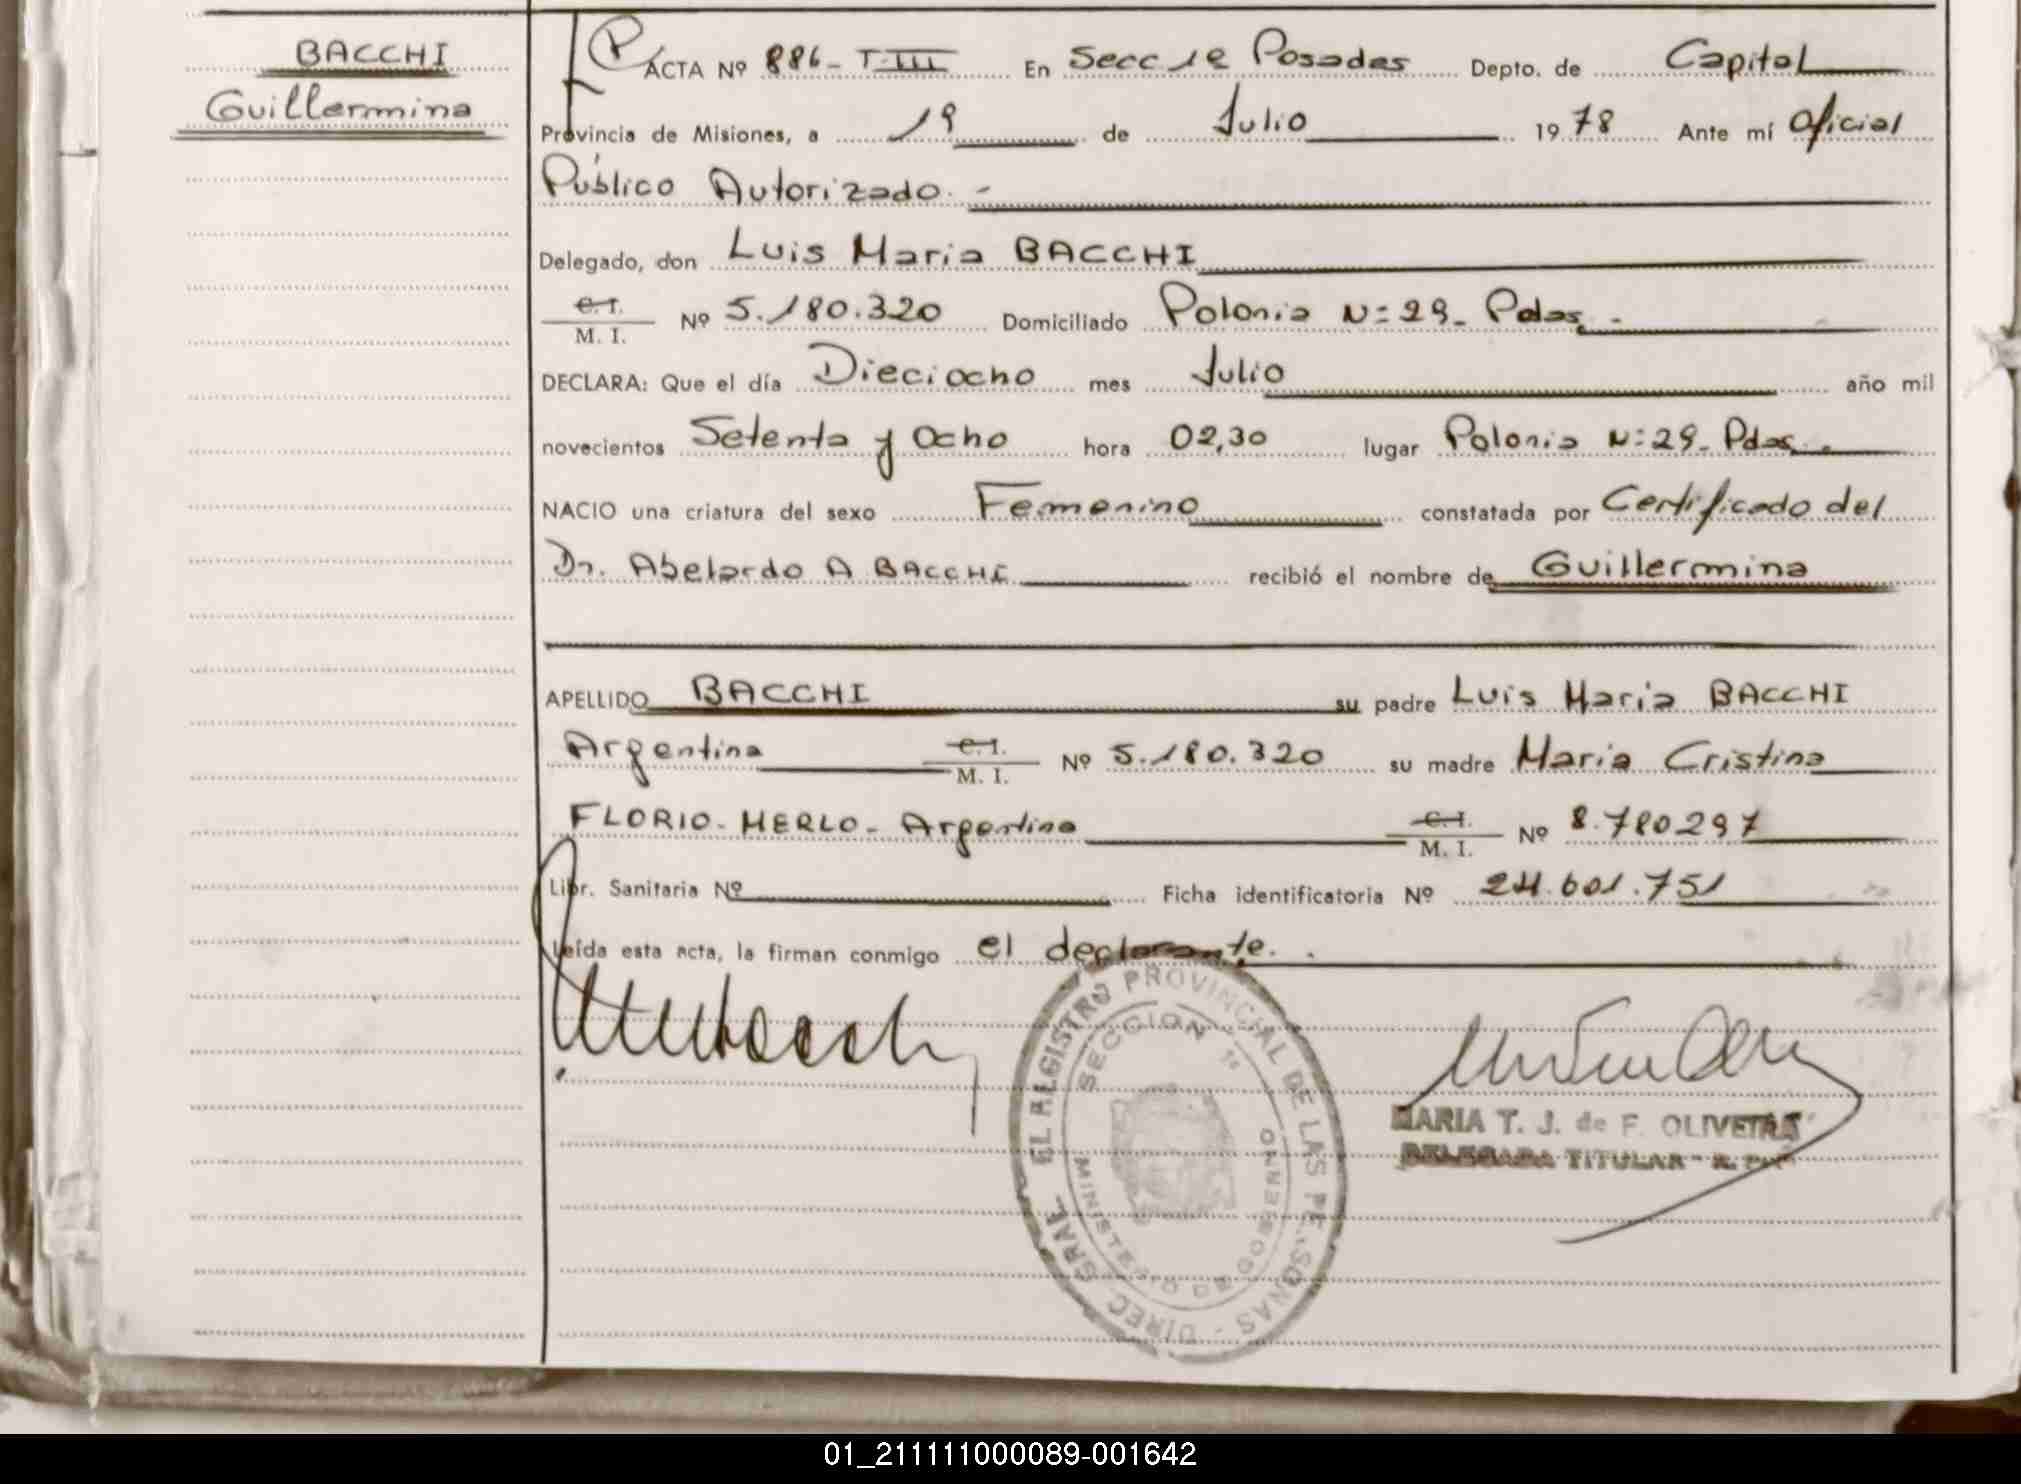 BACCHI
Guillermina
ACTA Nº 886- T-III En Secc 1ª Posadas Depto. de Capital
Provincia de Misiones, a 19 de Julio 1978 Ante mí Oficial
Público Autorizado.-
Delegado, don Luis Maria BACCHI
C.I.
M. I. Nº 5.180.320 Domiciliado Polonia N=29- Pdas.-
DECLARA: Que el día Dieciocho mes Julio año mil
novecientos Setenta y Ocho hora 02,30 lugar Polonia N=29- Pdas.-
NACIO una criatura del sexo Femenino constatada por Certificado del
Dr. Abelardo A BACCHI recibió el nombre de Guillermina
APELLIDO BACCHI su padre Luis Maria BACCHI
Argentina C.I. M. I. Nº 5.180.320 su madre Maria Cristina
FLORIO-MERLO- Argentina C.I. M. I. Nº 8.780297
Libr. Sanitaria Nº Ficha identificatoria Nº 24.601.751
Leída esta acta, la firman conmigo el declarante..
DIREC. GRAL. REGISTRO PROVINCIAL DE LAS PERSONAS
SECCION 1º
MINISTERIO DE GOBIERNO
MARIA T. J. de F. OLIVEIRAS
DELEGADA TITULAR
01_211111000089-001642